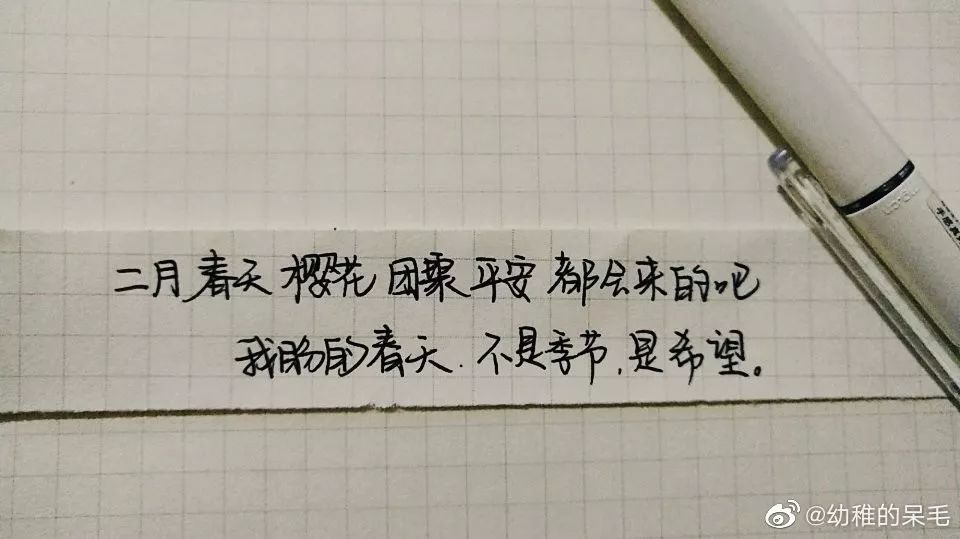 二月 春天 樱花 团栗 平安 都会来的吧
我盼的春天.不是季节,是希望。
@幼稚的呆毛